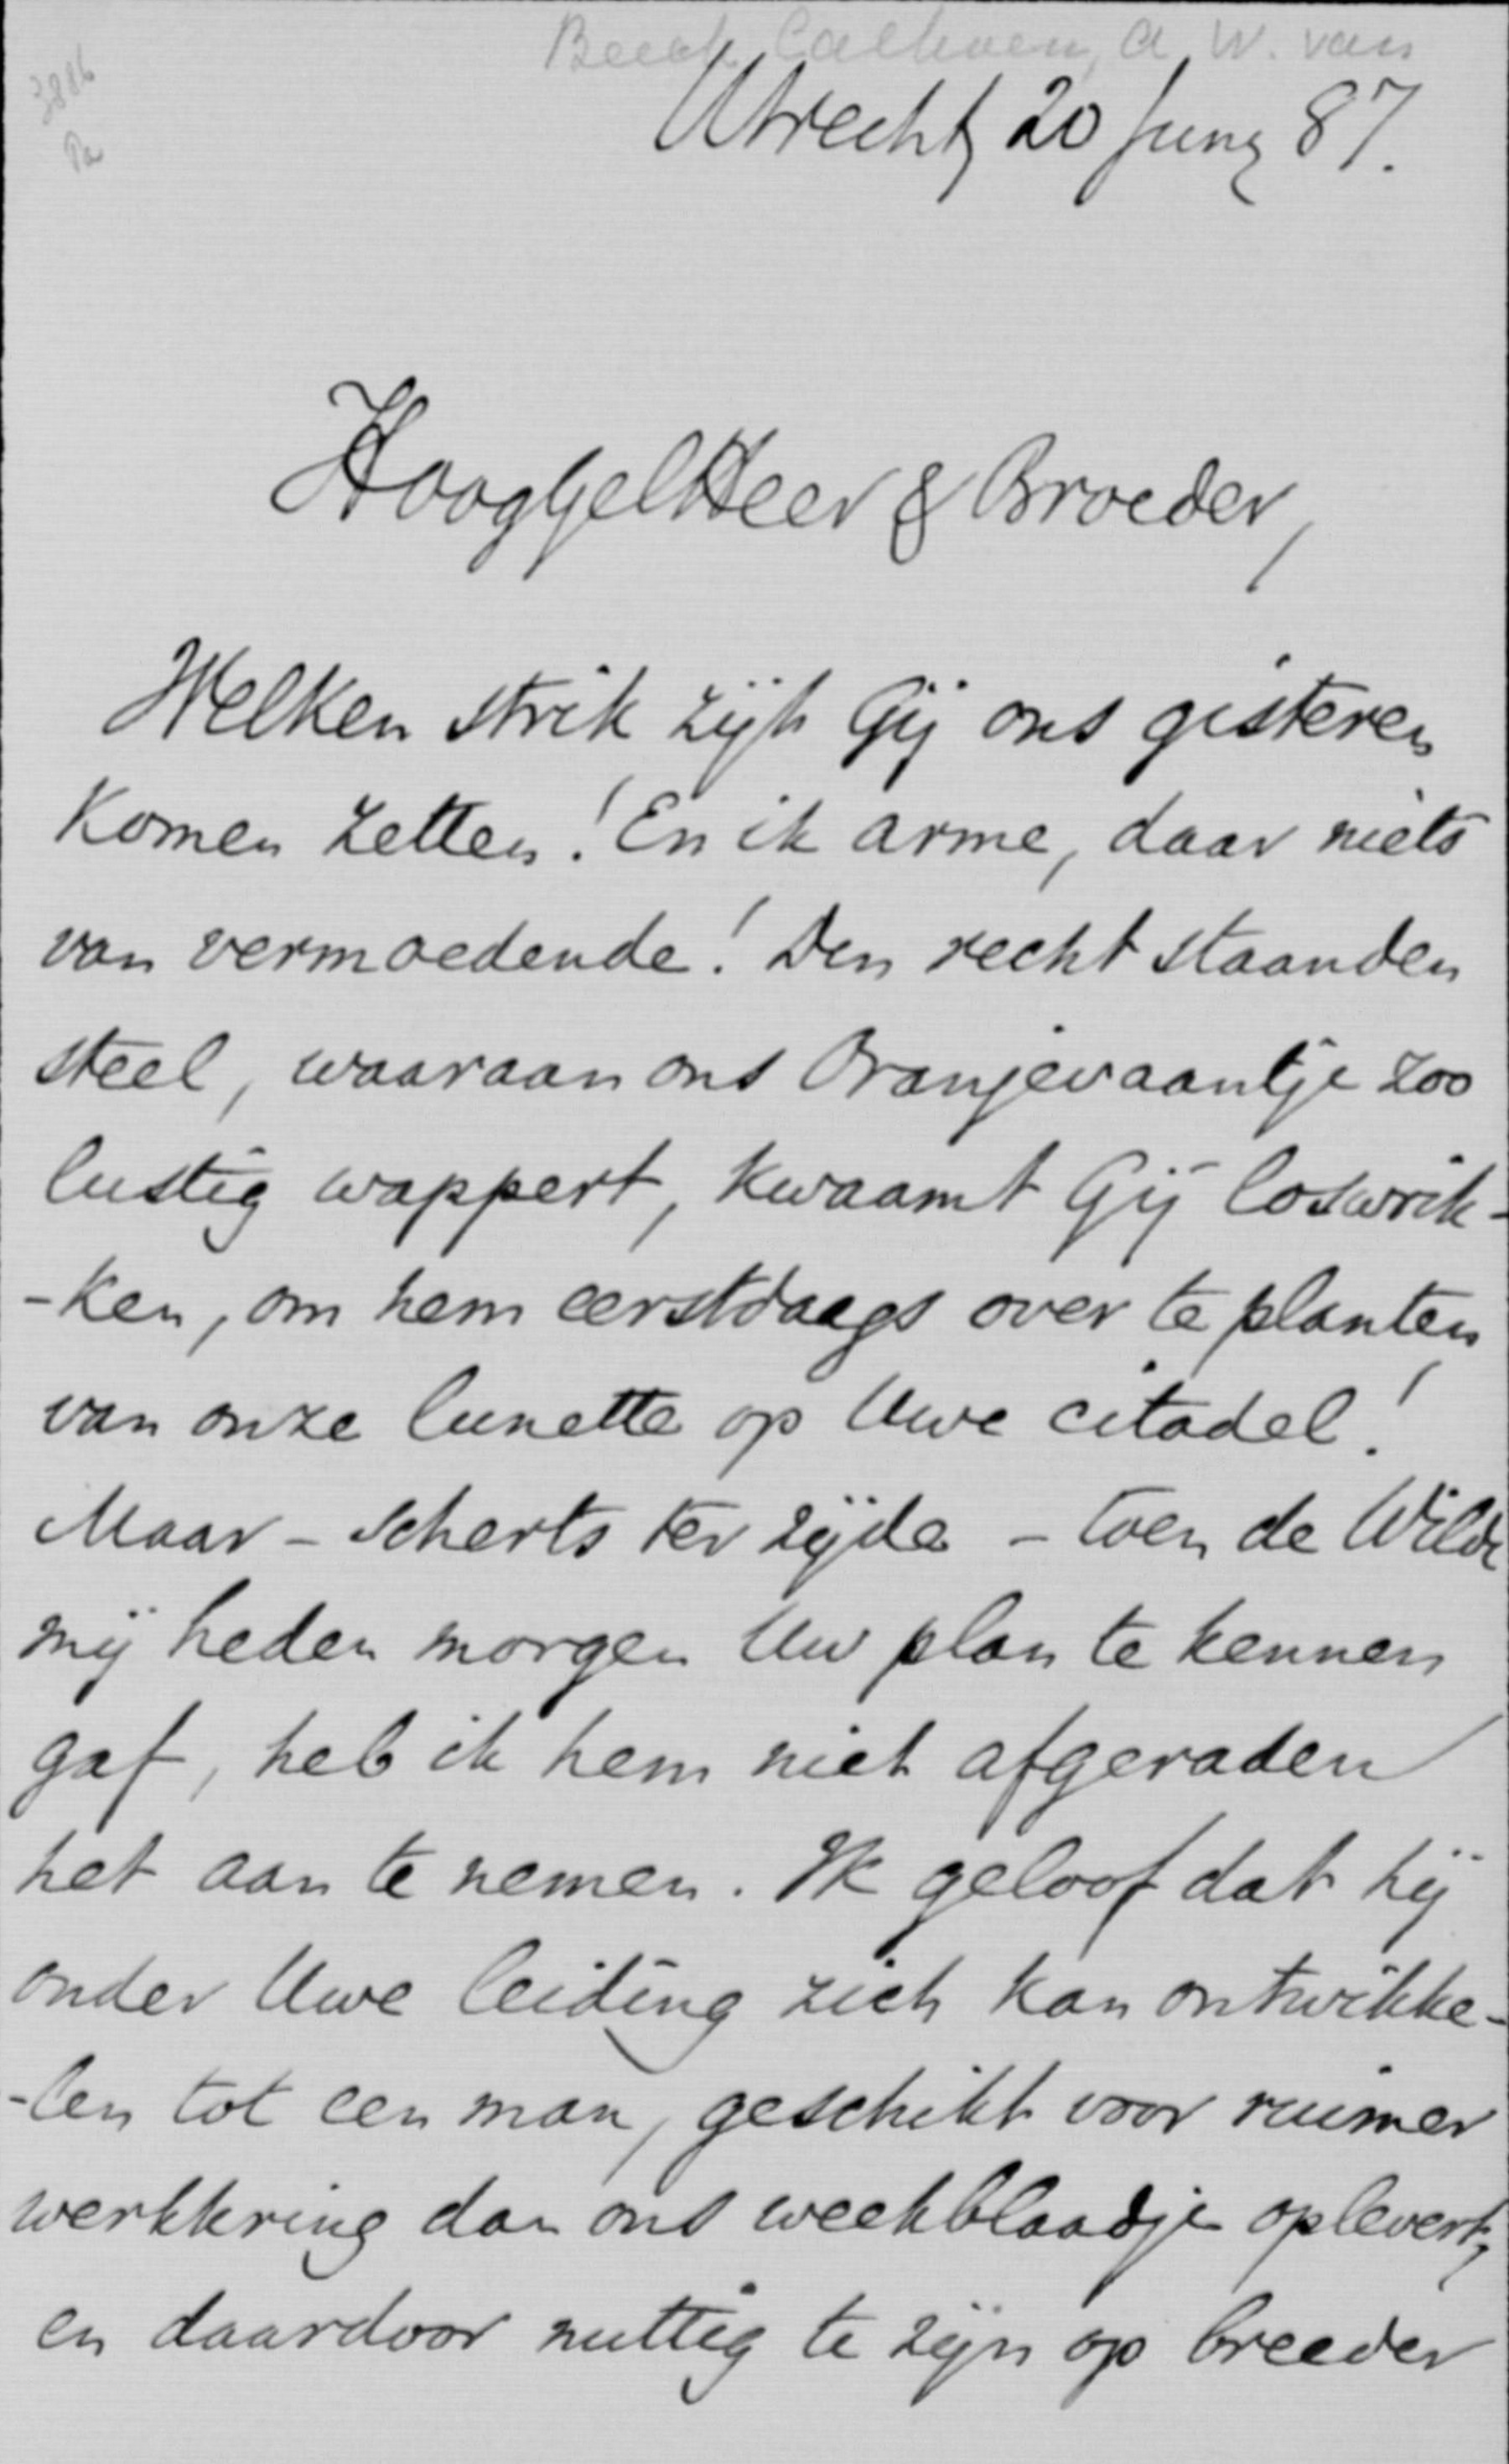 Beeck Calkoen, A. W. van
3886
Pa
Utrecht, 20 Juny 87.
HooggelHeer & Broeder,
Welken strik zijt Gij ons gisteren
komen zetten! En ik arme, daar niets
van vermoedende! Den recht staanden
steel, waaraan ons Oranjevaantje zoo
lustig wappert, kwaamt Gij loswrik-
-ken, om hem eerstdaags over te planten
van onze lunette op Uwe citadel!
Maar - scherts ter zijde - toen de Wilde
mij heden morgen Uw plan te kennen
gaf, heb ik hem niet afgeraden
het aan te nemen. Ik geloof dat hij
onder Uwe leiding zich kan ontwikke-
-len tot een man, geschikt voor ruimer
werkkring dan ons weekblaadje oplevert,
en daardoor nuttig te zijn op breeder